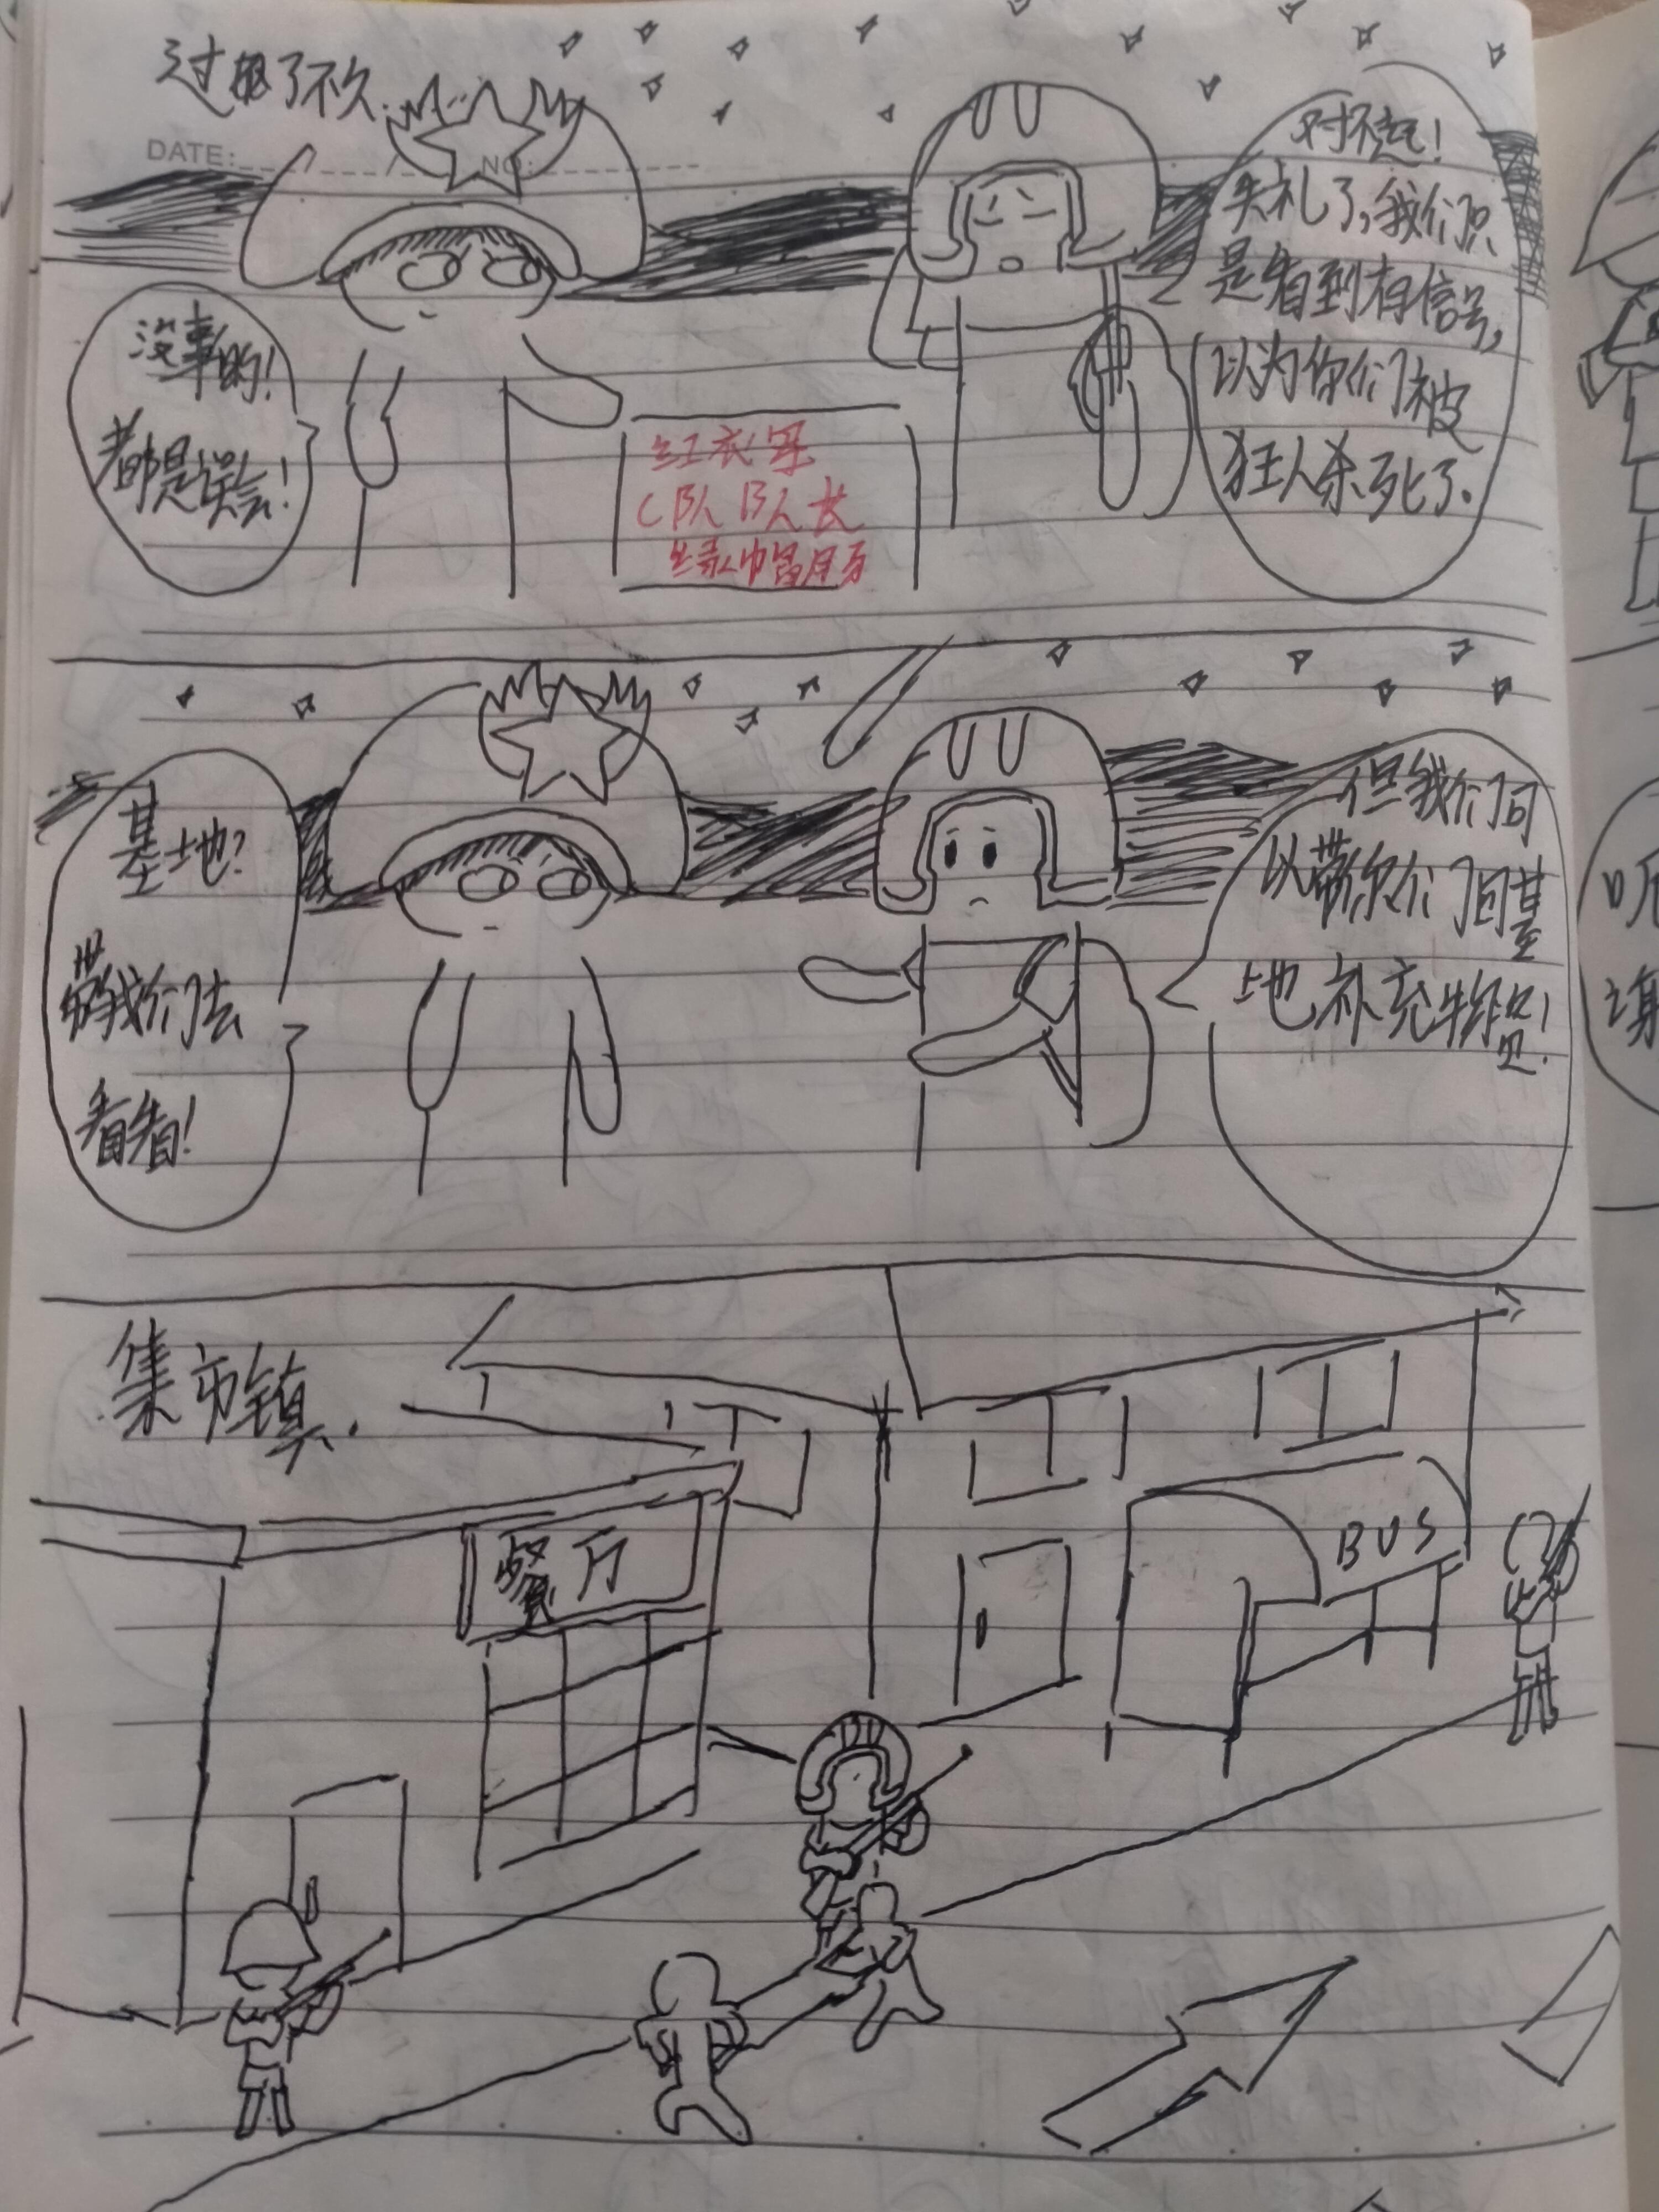 过了不久.
DATE: / NO:
对不起!
失礼了,我们只
是看到有信号,
以为你们被
狂人杀死了.
没事的!
都是误会!
红衣军
C队队长
绿巾
但我们可
以带你们回基
地补充物资!
基地?
带我们去
看看!
集市镇.
餐厅
BUS